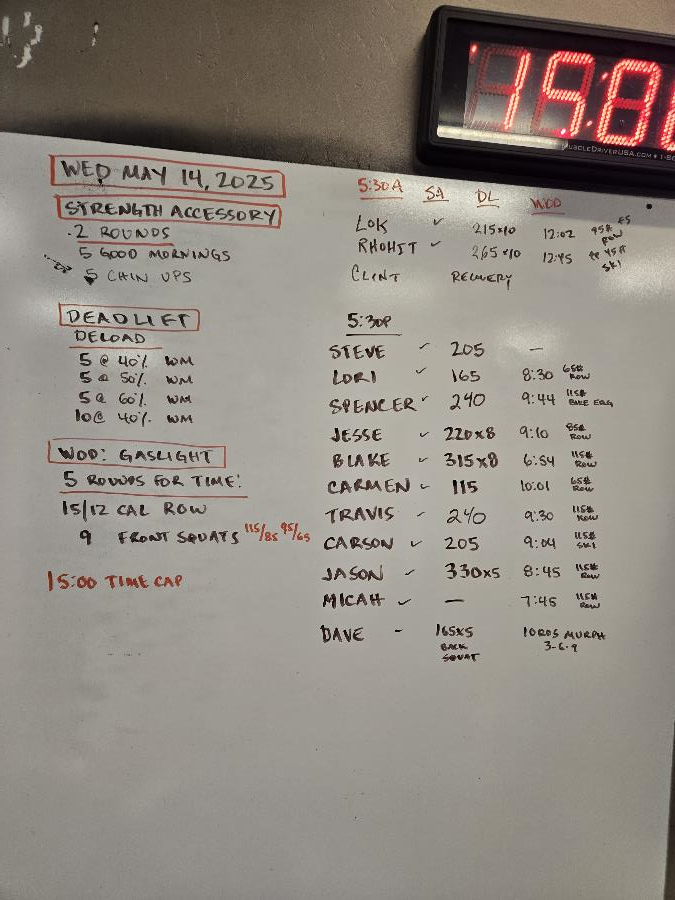 15:0
MUSCLEDRIVERUSA.COM • 1-8
WED MAY 14, 2025
STRENGTH ACCESSORY
2 ROUNDS
5 GOOD MORNINGS
5 CHIN UPS
DEADLIFT
DELOAD
5 @ 40% WM
5 @ 50% WM
5 @ 60% WM
10 @ 40% WM
WOD: GASLIGHT
5 ROUNDS FOR TIME:
15/12 CAL ROW
9 FRONT SQUATS 115/85 95/65
15:00 TIME CAP
5:30A SA DL WOD
LOK ✓ 215x10 12:02 95# ROW
RHOHIT ✓ 265x10 12:45 45# SKI
CLINT RECOVERY
5:30P
STEVE ✓ 205 —
LORI ✓ 165 8:30 65# ROW
SPENCER ✓ 240 9:44 115# BIKE ERG
JESSE ✓ 220x8 9:10 85# ROW
BLAKE ✓ 315x8 6:54 115# ROW
CARMEN ✓ 115 10:01 65# ROW
TRAVIS ✓ 240 9:30 115# ROW
CARSON ✓ 205 9:04 115# SKI
JASON ✓ 330x5 8:45 115# ROW
MICAH ✓ — 7:45 115# ROW
DAVE - 165x5 BACK SQUAT 10 RDS MURPH 3-6-9